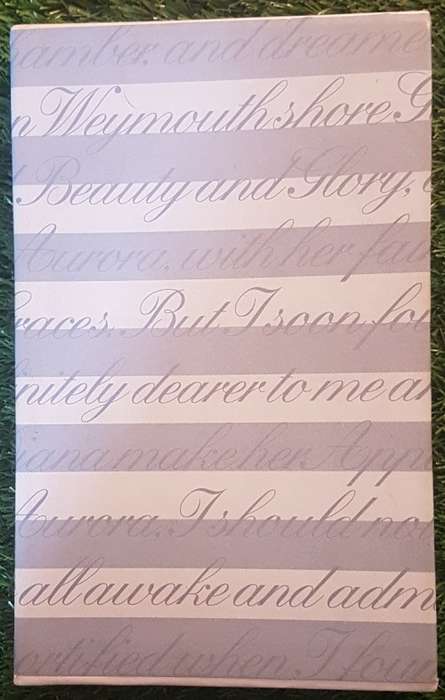 amber, and dreame
n Weymouth shore G
Beauty and Glory,
Aurora, with her fair
races. But I soon fou
nitely dearer to me an
iana make her App
Aurora. I should not
all awake and adm
ortified when I foun